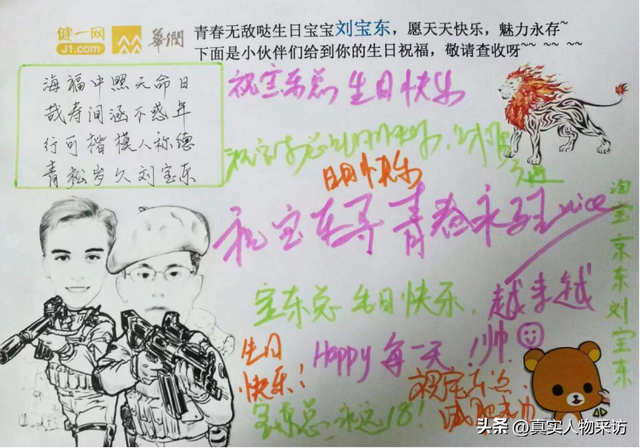 健一网
J1.com
华润
青春无敌哒生日宝宝刘宝东，愿天天快乐，魅力永存~
下面是小伙伴们给到你的生日祝福，敬请查收呀~~ ~~ ~
海福中照天命日
哉寿间涵不惑年
行可楷模人称德
青松岁久刘宝东
祝宝东总生日快乐
生日快乐
宝东总 生日快乐，越来越帅！
生日快乐！
Happy 每一天！
宝东总永远18！
淘宝京东刘宝东
头条 @真实人物采访